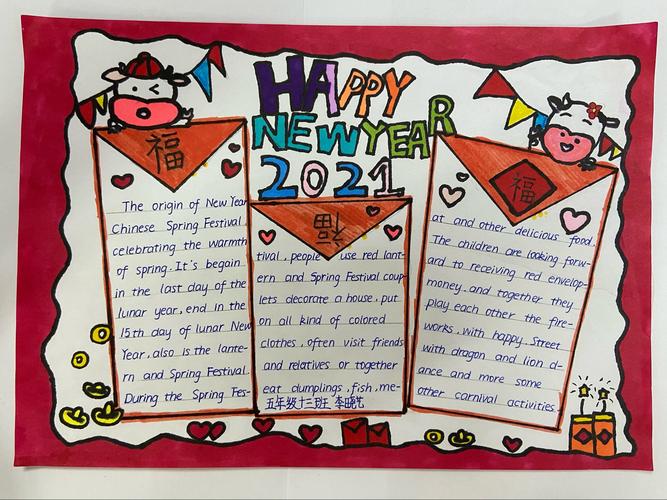 HAPPY
NEW YEAR
2021
福
The origin of New Year
Chinese Spring Festival
celebrating the warmth
of spring. It's begain
in the last day of the
lunar year, end in the
15th day of lunar New
Year, also is the lante-
rn and Spring Festival.
During the Spring Fes-
福
tival, people use red lant-
ern and Spring Festival coup-
lets decorate a house, put
on all kind of colored
clothes, often visit friends
and relatives or together
eat dumplings, fish, me-
五年级十三班 李
福
at and other delicious food.
The children are looking forw-
ard to receiving red envelop-
money. and together they
play each other the fire-
works, with happy. Street
with dragon and lion d-
ance and more some
other carnival activities.